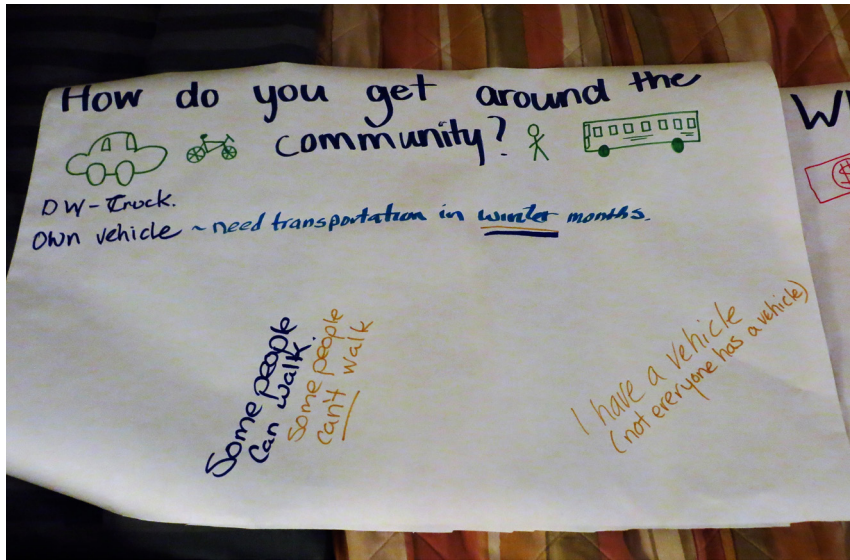 How do you get around the
community?
DW - Truck.
Own vehicle ~ need transportation in winter months.
Some people
can walk.
Some people
can't walk
I have a vehicle
(not everyone has a vehicle)
$